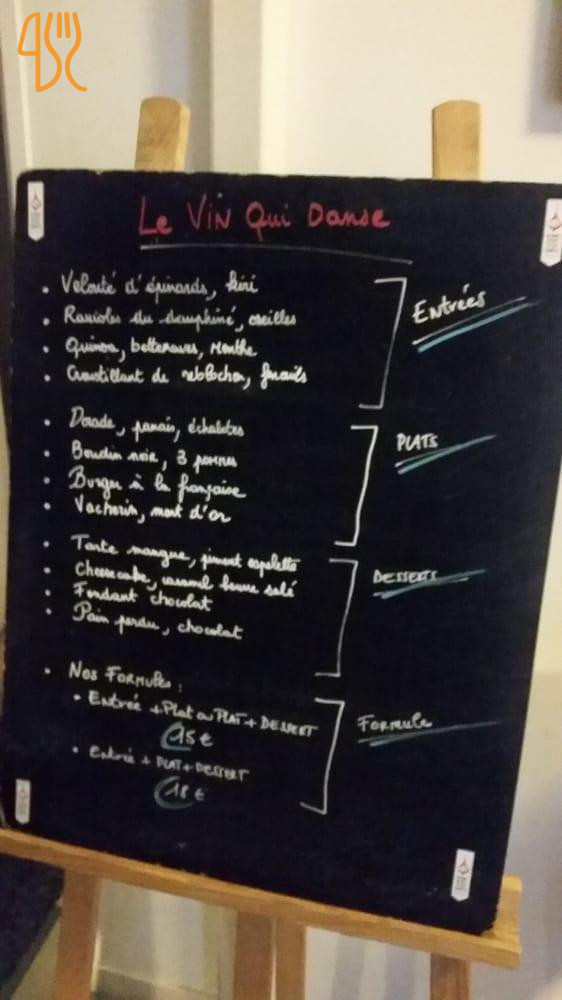 Le Vin Qui Danse
Velouté d'épinards, kiri
Ravioles du dauphiné, oseilles
Quinoa, betteraves, Menthe
Croustillant de reblochon, fenouils
Entrées
Dorade, panais, échalotes
Boudin noir, 3 pommes
Burger à la française
Vacherin, mont d'or
PLATS
Tarte mangue, piment espelette
Cheesecake, caramel beurre salé
Fondant chocolat
Pain perdu, chocolat
DESSERTS
Nos Formules :
Entrée + Plat ou PLAT + DESSERT
15 €
Entrée + PLAT + DESSERT
18 €
Formule